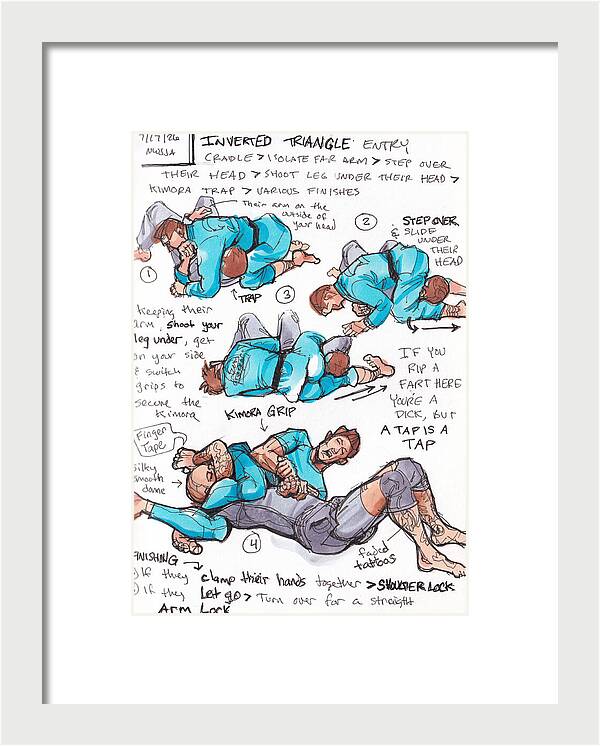 7/17/26
NWJJA
INVERTED TRIANGLE ENTRY
CRADLE > ISOLATE FAR ARM > STEP OVER
THEIR HEAD > SHOOT LEG UNDER THEIR HEAD >
KIMORA TRAP > VARIOUS FINISHES
Their arm on the
outside of
your head
1
TRAP
2
STEP OVER
& SLIDE
UNDER
THEIR
HEAD
3
keeping their
arm, shoot your
leg under, get
on your side
& switch
grips to
secure the
Kimora
KIMORA GRIP
IF YOU
RIP A
FART HERE
YOU'RE A
DICK, BUT
A TAP IS A
TAP
Finger
Tape
silky
smooth
dome
4
faded
tattoos
FINISHING
) If they clamp their hands together > SHOULDER LOCK
) If they Let go > Turn over for a straight
Arm Lock